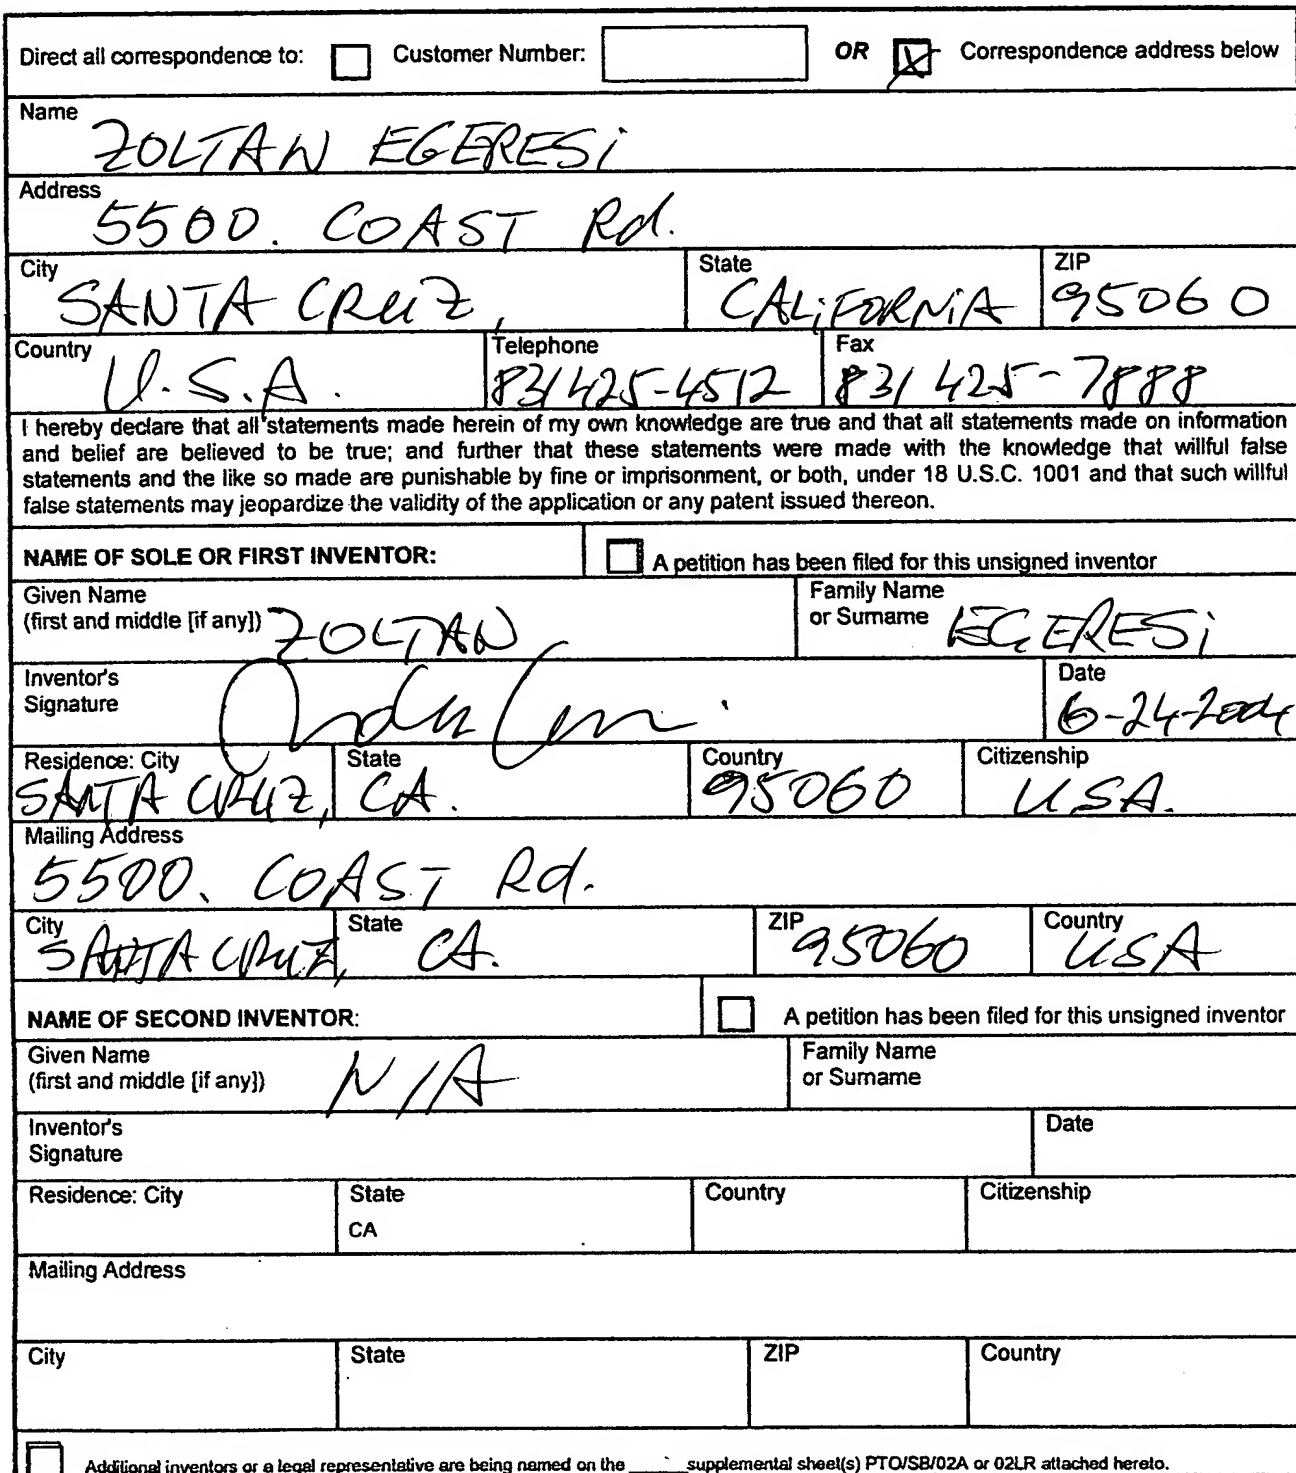 Direct all correspondence to: Customer Number: OR Correspondence address below
Name
ZOLTAN EGERESi
Address
5500. COAST Rd.
City State ZIP
SANTA CRUZ, CALiFORNiA 95060
Country Telephone Fax
U.S.A. 831 425-4512 831 425-7888
I hereby declare that all statements made herein of my own knowledge are true and that all statements made on information
and belief are believed to be true; and further that these statements were made with the knowledge that willful false
statements and the like so made are punishable by fine or imprisonment, or both, under 18 U.S.C. 1001 and that such willful
false statements may jeopardize the validity of the application or any patent issued thereon.
NAME OF SOLE OR FIRST INVENTOR: A petition has been filed for this unsigned inventor
Given Name Family Name
(first and middle [if any]) ZOLTAN or Surname EGERESi
Inventor's Date
Signature 6-24-2004
Residence: City State Country Citizenship
SANTA CRUZ, CA. 95060 USA.
Mailing Address
5500. COAST Rd.
City State ZIP Country
SANTA CRUZ, CA. 95060 USA
NAME OF SECOND INVENTOR: A petition has been filed for this unsigned inventor
Given Name Family Name
(first and middle [if any]) N/A or Surname
Inventor's Date
Signature
Residence: City State Country Citizenship
CA
Mailing Address
City State ZIP Country
Additional inventors or a legal representative are being named on the ____ supplemental sheet(s) PTO/SB/02A or 02LR attached hereto.